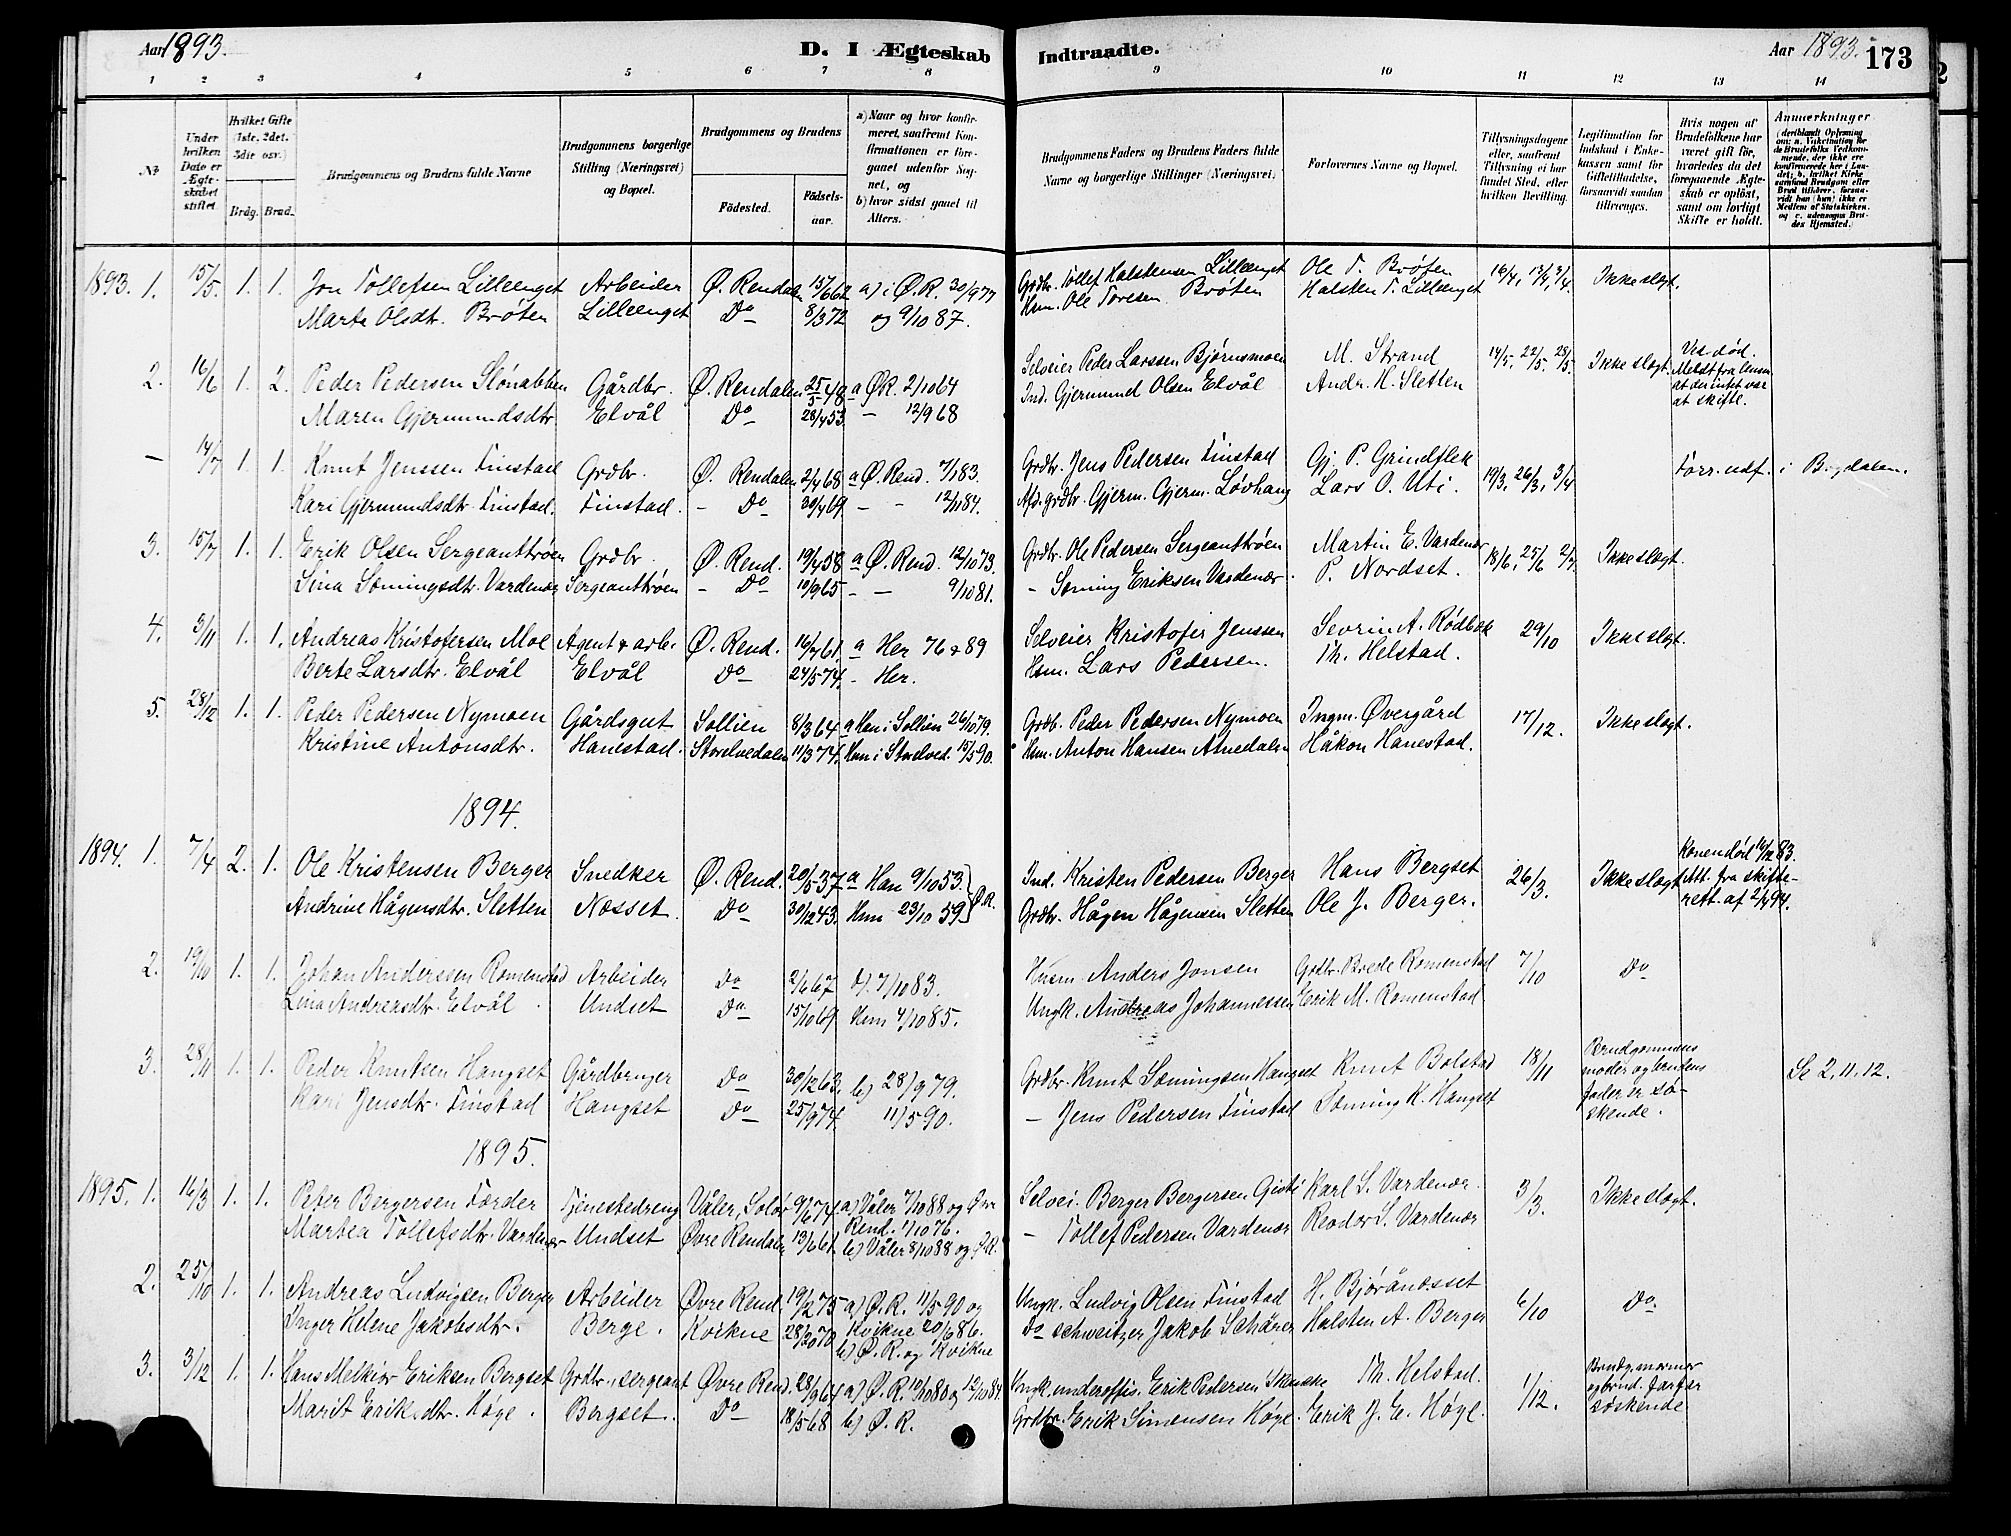 Aar 1893.
D. I Ægteskab Indtraadte.
Aar 1893. 173
1 2 3 4 5 6 7 8 9 10 11 12 13 14
No
Under hvilken Dato er Ægteskabet stiftet.
Hvilket Gifte (1ste, 2det, 3die osv.)
Brdg. Brud.
Brudgommens og Brudens fulde Navne
Brudgommens borgerlige Stilling (Næringsvei) og Bopæl.
Brudgommens og Brudens
Födested. Födsels-aar.
a) Naar og hvor konfirmeret, saafremt Konfirmationen er foregaaet udenfor Sognet, og
b) hvor sidst gaaet til Alters.
Brudgommens Faders og Brudens Faders fulde Navne og borgerlige Stillinger (Næringsvei)
Forlovernes Navne og Bopæl.
Tillysningsdagene eller, saafremt Tillysning ei har fundet Sted, efter hvilken Bevilling.
Legitimation for Indskud i Enkekassen samt for Giftetilladelse, forsaavidt saadan tiltrænges.
Hvis nogen af Brudefolkene har været gift för, hvorledes da det foregaaende Ægteskab er oplöst, samt om lovligt Skifte er holdt.
Anmærkninger
1893. 1. 15/5. 1. 1. Jon Tollefsen Lilleenget Arbeider Ø. Rendalen 15/6 62 a) i Ø.R. 30/9 77 Grdbr. Tollef Halstensen Lilleenget Ole T. Brøten 16/4, Ikke slegt.
Marte Olsdt. Brøten Lilleenget Do 8/3 72 og 9/10 87. Hsm. Ole Toresen Brøten Halsten T. Lilleenget
2. 16/6 1. 2. Peder Pedersen Slønabben Gårdbr. Ø. Rendalen 25/5 48 a ØR. 2/10 64 Selveier Peder Larssen Bjørnsmoen M. Strand 14/5. 22/5. 28/5. Ikke slegt. død. Meldt fra lensm. at der intet var at skifte.
Maren Gjermundsdtr Elvål Do 28/4 53. – 12/9 68 Ind. Gjermund Olsen Elvål Andr. H. Sletten
– 14/7 1. 1. Knut Jenssen Finstad Grdbr. Ø. Rendalen 2/4 68 a Ø. Rend. 7/ 83. Grdbr. Jens Pedersen Finstad Gj. P. Grindflek 19/3, 26/3, 3/4 Forr. udf. i
Kari Gjermundsdtr. Finstad. Finstad. – Do 30/4 69. – – 12/ 84. Afd. grdbr. Gjerm. Gjerm. Løvhaug Lars O. Uti.
3. 15/7 1. 1. Erik Olsen Sergeanttrøen Grdbr. Ø. Rend. 19/4 58 a Ø. Rend. 12/10 73. Grdbr. Ole Pedersen Sergeanttrøen Martin E. Vardenær 18/6, 25/6 2/7 Ikke slegt.
Lina Semingsdtr. Vardenær Sergeanttrøen – Do 10/9 65 – – 9/10 81. – Seming Eriksen Vardenær. P. Nordset.
4. 5/11 1. 1. Andreas Kristofersen Moe Agent & arb. Ø. Rend. 16/7 61. a Her 76 & 89 Selveier Kristofer Jenssen Sevrin A. Rødbæk 29/10 Ikke slegt.
Berte Larsdtr. Elvål Elvål Do 24/5 74. – Her. Hsm. Lars Pedersen. Th. Helstad.
5. 28/12 1. 1. Peder Pedersen Nymoen Gårdsgut Sollien 8/3 64 a Han i Sollien 26/10 79. Grdb. Peder Pedersen Nymoen Ingm. Øvergård 17/12. Ikke slegt.
Kristine Antonsdtr. Hanestad. Storelvedalen 11/3 74. Hun i Storelved. 15/5 90. Hsm. Anton Hansen Atnedalen Håkon Hanestad.
1894.
1894. 1. 7/4 2. 1. Ole Kristensen Berger Snedker Ø. Rend. 20/5 37 a Han 9/10 53. Ind. Kristen Pedersen Berger Hans Bergset 26/3. Ikke slegt Konen død 83. Att. fra skifterett. af 94.
Andrine Hågensdtr. Sletten Næsset. Do 30/12 43. Hun 23/10 59. Ø.R. Grdbr. Hågen Hågensen Sletten Ole J. Berger.
2. 19/10 1. 1. Johan Anderssen Romenstad Arbeider Do 2/6 67 7/10 83. Husm Anders Jonsen Grdbr. Brede Romenstad 7/10 Do
Lina Andreasdtr. Elvål. Undset Do 15/10 69 Hun 4/10 85. Ungk. Andreas Johannessen Erik M. Romenstad
3. 28/11 1. 1. Peder Knutsen Hangset Gårdbruger Do 30/12 63. b) 28/9 79. Grdbr. Knut Semingsen Hangset Knut Bolstad 18/11 Brudgommens moder og brudens fader er søskende. Se 2, 11, 12.
Kari Jensdtr. Finstad Hangset Do 25/9 74. 11/5 90. – Jens Pedersen Finstad Seming K. Hangset
1895.
1895. 1. 16/3 1. 1. Peter Bergersen Førder Tjenestedreng Våler, Solør 9/6 74. a) Våler 7/10 88 og Øvre Rend. 1/10 76. Selvei. Berger Bergersen Karl S. Vardenær 3/3. Ikke slegt.
Martea Tollefsdtr. Vardenær Undset Øvre Rendalen 13/6 61. b) Våler 8/10 88 og Ø.R. – Tollef Pedersen Vardenær Reodor S. Vardenær
2. 25/10 1. 1. Andreas Ludvigsen Berger Arbeider Øvre Rend. 19/2 75 a) Ø.R. 11/5 90 og Kvikne 20/6 86. Ungk. Ludvig Olsen Finstad H. Bjøråneset 6/10 Do.
Inger Helene Jakobsdtr. Berge. Kvikne 70 b) Ø.R. og Kvikne Do schweitzer Jakob Schärer Halsten A. Berger
3. 3/12 1. 1. Hans Melkior Eriksen Bergset Grdbr., sergeant Øvre Rend. 28/9 64 a) Ø.R. 10/10 80 og 12/10 84 Ungk. underoffis. Erik Pedersen Th. Helstad. 1/12. Brudg. mormor og brud. farfar søskende
Marit Eriksdtr. Høge. Bergset. Do 18/5 68 b) Ø.R. Grdbr. Erik Simensen Høge. Erik J. E. Høge.